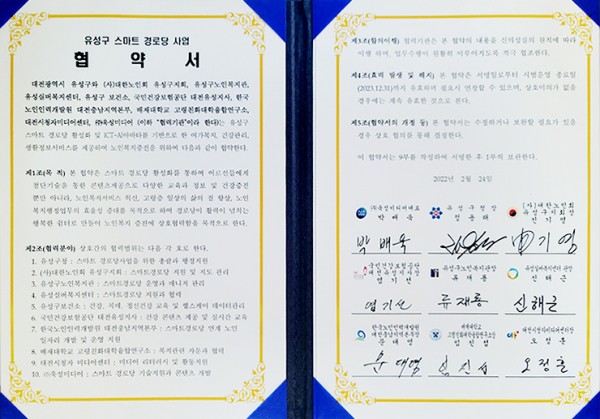 유성구 스마트 경로당 사업
협 약 서
대전광역시 유성구와 (사)대한노인회 유성구지회, 유성구노인복지관,
유성실버복지센터, 유성구 보건소, 국민건강보험공단 대전유성지사, 한국
노인인력개발원 대전충남지역본부, 배재대학교 고령친화대학융합연구소,
대전시청자미디어센터, ㈜옥성미디어 (이하 "협력기관"이라 한다)는 유성구
스마트 경로당 활성화 및 ICT·AI아바타를 기반으로 한 여가복지, 건강관리,
생활정보서비스를 제공하여 노인복지증진을 위하여 다음과 같이 협약한다.
제1조(목 적) 본 협약은 스마트 경로당 활성화를 통하여 어르신들에게
첨단기술을 통한 콘텐츠제공으로 다양한 교육과 정보 및 건강증진
뿐만 아니라, 노인복지서비스 혁신, 고령층 일상의 삶의 질 향상, 노인
복지행정업무의 효율성 증대를 목적으로 하며 경로당이 활력이 넘치는
행복한 쉼터로 만들어 노인복지 증진에 상호협력함을 목적으로 한다.
제2조(협력분야) 상호간의 협력범위는 다음 각 호로 한다.
1. 유성구청 : 스마트 경로당사업을 위한 총괄과 행정지원
2. (사)대한노인회 유성구지회 : 스마트경로당 지원 및 지도 관리
3. 유성구노인복지관 : 스마트경로당 운영과 매니저 관리
4. 유성실버복지센터 : 스마트경로당 지원과 협력
5. 유성구보건소 : 건강, 치매, 정신건강 교육 및 헬스케어 데이터관리
6. 국민건강보험공단 대전유성지사 : 건강 콘텐츠 제공 및 실시간 교육
7. 한국노인인력개발원 대전충남지역본부 : 스마트경로당 연계 노인
일자리 개발 및 운영 지원
8. 배재대학교 고령친화대학융합연구소 : 복지관련 자문과 협력
9. 대전시청자 미디어센터 : 미디어 리터러시 및 활동지원
10. ㈜옥성미디어 : 스마트경로당 기술지원과 콘텐츠 개발
제3조(협의이행) 협력기관은 본 협약의 내용을 신의성실의 원칙에 따라
이행 하며, 업무수행이 원활히 이루어지도록 적극 협조한다.
제4조(효력 발생 및 해지) 본 협약은 서명일로부터 시범운영 종료일
(2023.12.31)까지 유효하며 필요시 연장할 수 있으며, 상호이의가 없을
경우에는 계속 유효한 것으로 한다.
제5조(협약서의 개정 등) 본 협약서는 수정하거나 보완할 필요가 있을
경우 상호 합의를 통해 결정한다.
이 협약서는 9부를 작성하여 서명한 후 1부씩 보관한다.
2022년 2월 24일
㈜옥성미디어대표
박 배 옥
유 성 구 청 장
정 용 래
(사)대한노인회
유성구지회장
신 기 영
박 배 옥
국민건강보험공단
대전유성지사장
엄 기 선
유성구노인복지관장
류 재 룡
유성실버복지센터 관장
신 해 근
엄기선 류재룡 신해근
한국노인인력개발원
대전충남지역본부장
문 태 영
배재대학교
고령친화대학융합연구소장
임 진 섭
대전시청자미디어센터장
오 정 훈
문태영 임진섭 오정훈